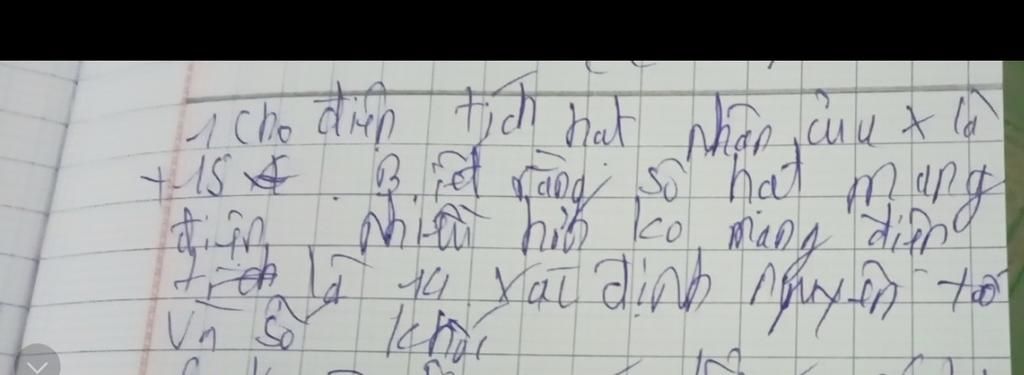 1 Cho điện tích hat nhân của X là
+15 Biết rằng số hat mang
điện nhiều hơn ko mang điện
tích là 14 xác định nguyên tố
và số khối